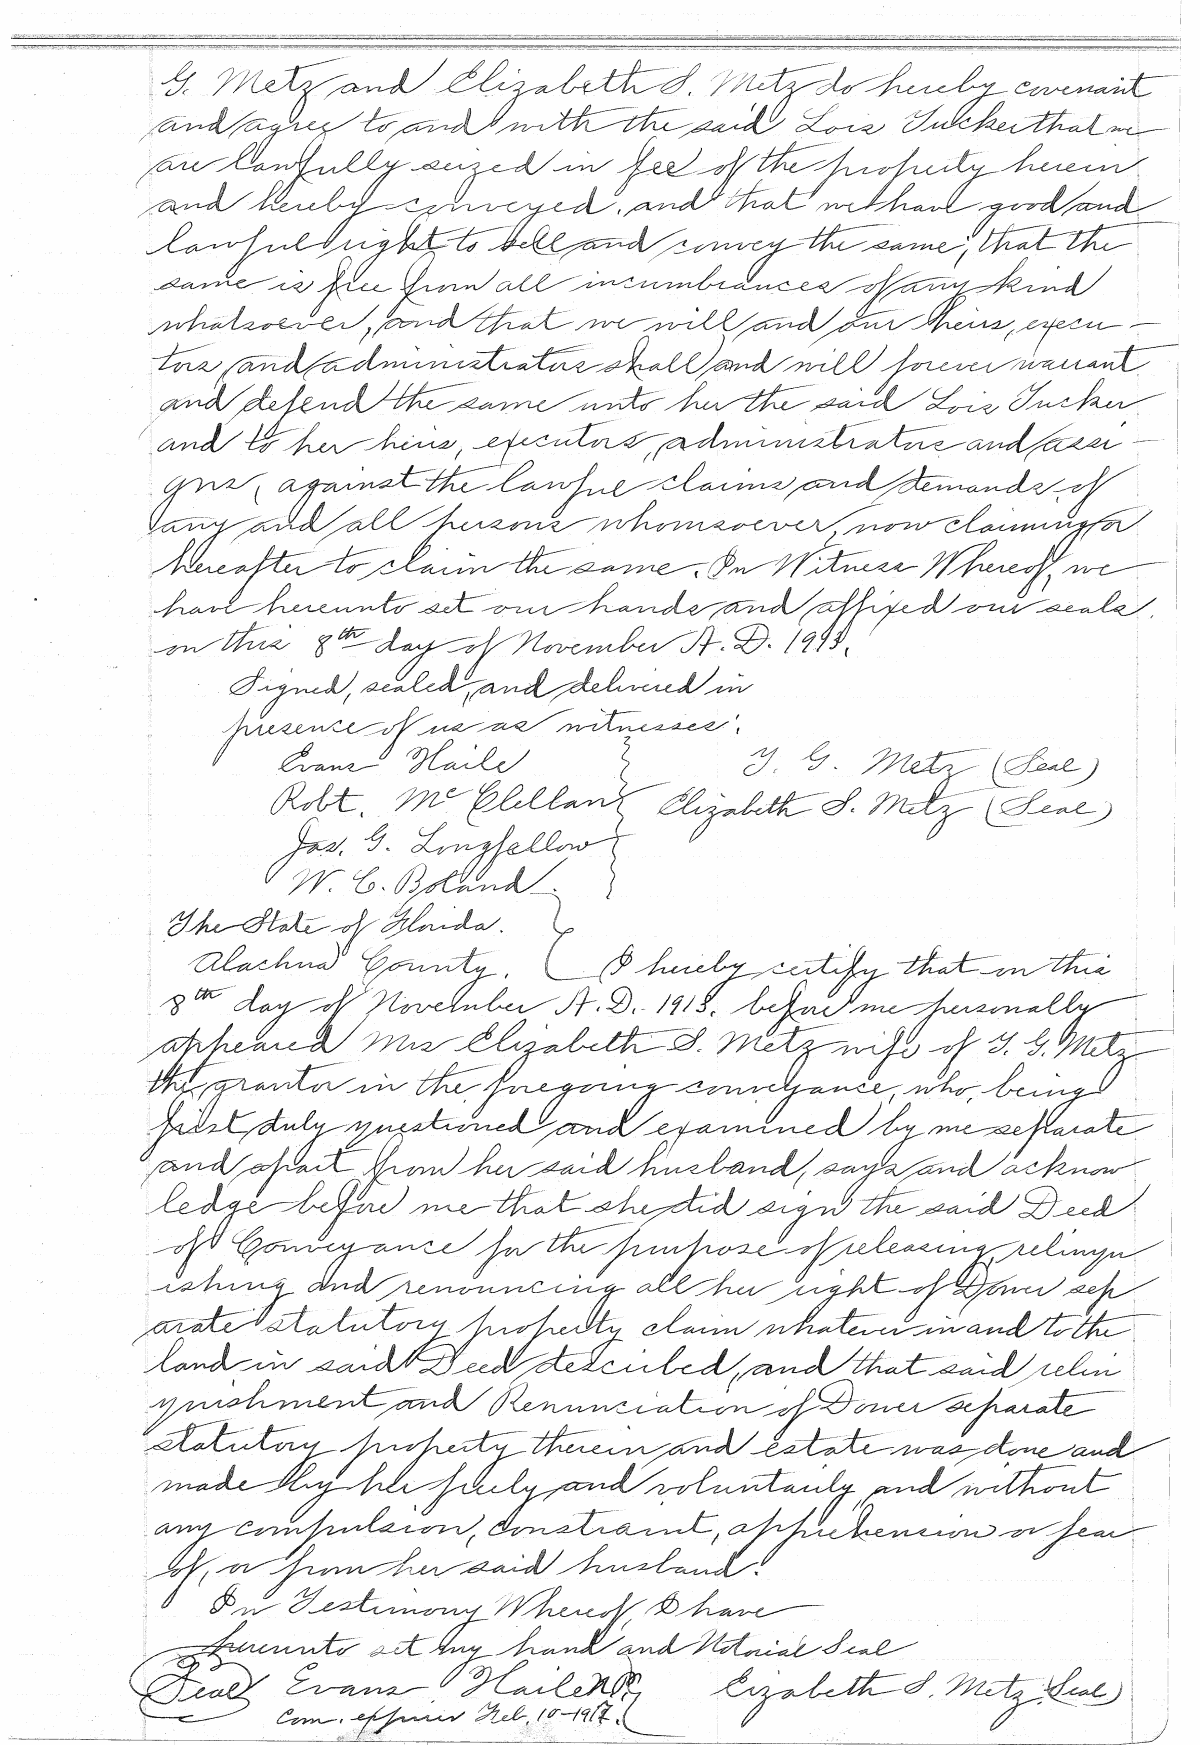 G. Metz and Elizabeth S. Metz do hereby covenant
and agree to and with the said Lois Tucker that we
are lawfully seized in fee of the property herein
and hereby conveyed, and that we have good and
lawful right to sell and convey the same; that the
same is free from all incumbrances of any kind
whatsoever, and that we will and our heirs, execu-
tors and administrators shall and will forever warrant
and defend the same unto her the said Lois Tucker
and to her heirs, executors, administrators and assi-
gns, against the lawful claims and demands of
any and all persons whomsoever, now claiming or
hereafter to claim the same. In Witness Whereof, we
have hereunto set our hands and affixed our seals.
on this 8th day of November A. D. 1913.
Signed, sealed, and delivered in
presence of us as witnesses:
Evans Haile
T. G. Metz (Seal)
Robt. Mc Clellan
Elizabeth S. Metz (Seal)
Jas. G. Longfellow
W. C. Boland
The State of Florida.
Alachua County. I hereby certify that on this
8th day of November A. D. 1913. before me personally
appeared Mrs Elizabeth S. Metz wife of T. G. Metz
the grantor in the foregoing conveyance, who, being
first duly questioned and examined by me separate
and apart from her said husband, says and acknow
ledge before me that she did sign the said Deed
of Conveyance for the purpose of releasing, relinqu
ishing and renouncing all her right of Dower sep
arate statutory property claim whatever in and to the
land in said Deed described, and that said relin
quishment and Renunciation of Dower separate
statutory property therein and estate was done and
made by her freely and voluntarily and without
any compulsion, constraint, apprehension or fear
of, or from her said husband.
In Testimony Whereof, I have
hereunto set my hand and Notorial Seal
Seal Evans Haile N.P.
Elizabeth S. Metz Seal)
Com. expires Feb. 10-1917.